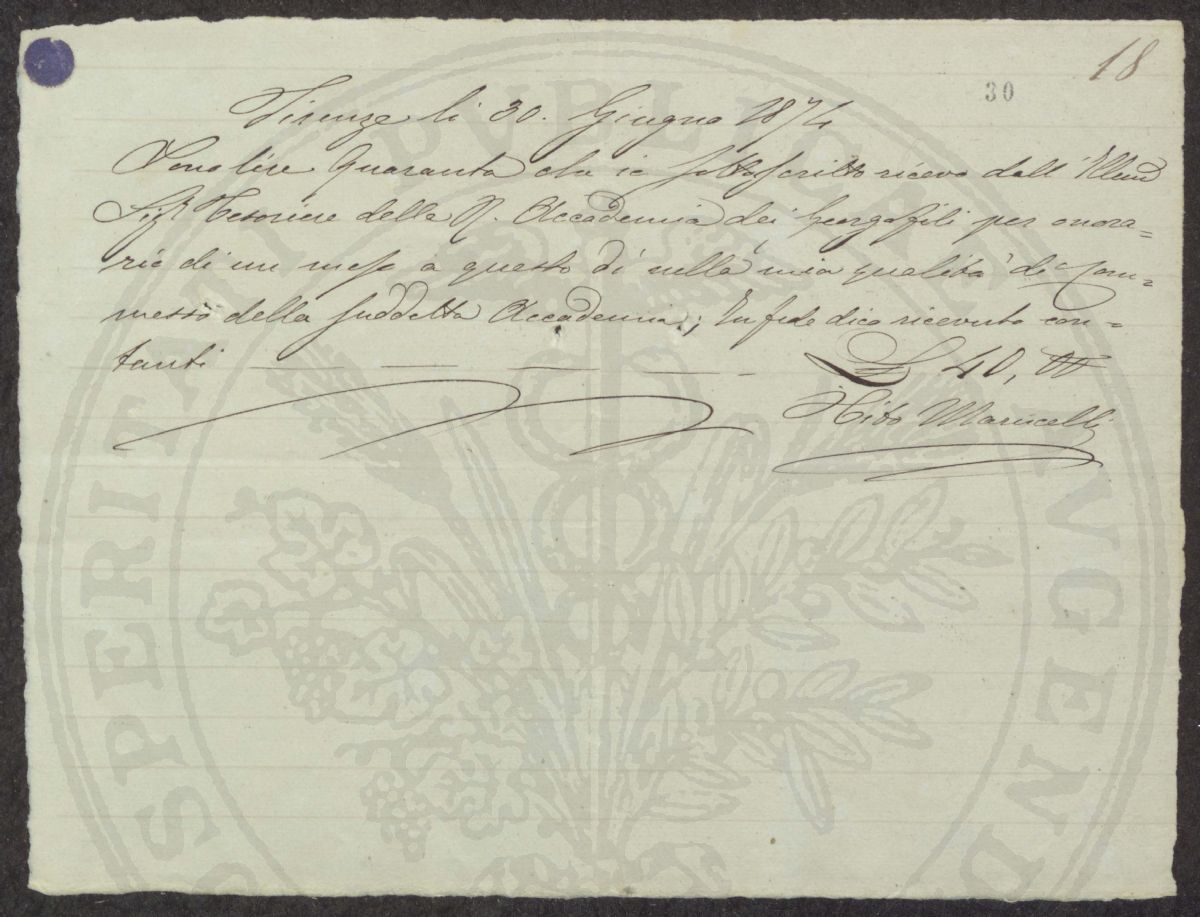 18
30
Firenze li 30. Giugno 1874
Sono lire Quaranta che io sottoscritto ricevo dall'
Sigr Tesoriere della R. Accademia dei Georgofili per onora=
rio di un mese a questo dì nella mia qualità di Com=
messo della suddetta Accademia; In fede dico ricevuto con=
tanti — — — — £ 40, 00
Marucelli
PROSPERITATI PUBLICAE AUGENDAE